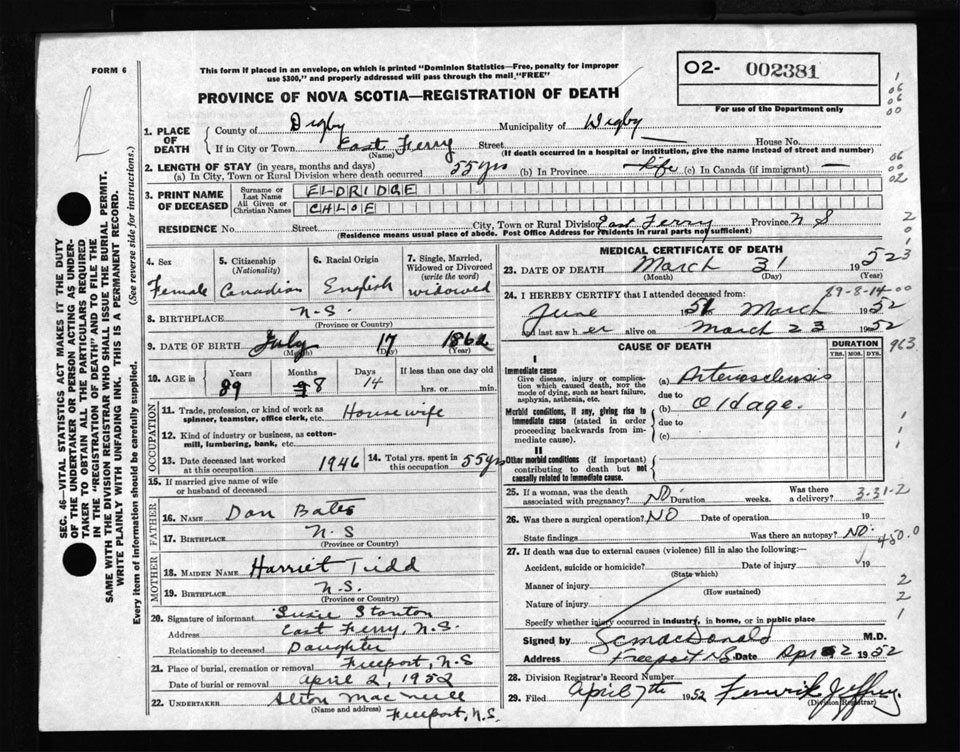 FORM 6
This form if placed in an envelope, on which is printed "Dominion Statistics—Free, penalty for improper
use $300," and properly addressed will pass through the mail "FREE"
PROVINCE OF NOVA SCOTIA—REGISTRATION OF DEATH
O2- 002381
For use of the Department only
1. PLACE OF DEATH
County of Digby Municipality of Digby
If in City or Town East Ferry Street House No.
(Name) (If death occurred in a hospital or institution, give the name instead of street and number)
2. LENGTH OF STAY (in years, months and days)
(a) In City, Town or Rural Division where death occurred 55 yrs (b) In Province life (c) In Canada (if immigrant) —
3. PRINT NAME OF DECEASED
Surname or Last Name ELDRIDGE
All Given or Christian Names CHLOE
RESIDENCE No. Street City, Town or Rural Division East Ferry Province N S
(Residence means usual place of abode. Post Office Address for residents in rural parts not sufficient)
4. Sex
Female
5. Citizenship
(Nationality)
Canadian
6. Racial Origin
English
7. Single, Married,
Widowed or Divorced
(write the word)
widowed
8. BIRTHPLACE N.S.
(Province or Country)
9. DATE OF BIRTH July 17 1862
(Month) (Day) (Year)
10. AGE in Years Months Days If less than one day old
89 8 14 hrs. or min.
OCCUPATION
11. Trade, profession, or kind of work as
spinner, teamster, office clerk, etc. Housewife
12. Kind of industry or business, as cotton-
mill, lumbering, bank, etc.
13. Date deceased last worked
at this occupation 1946
14. Total yrs. spent in
this occupation 55 yrs
15. If married give name of wife
or husband of deceased
FATHER
16. NAME Dan Bates
17. BIRTHPLACE N.S
(Province or Country)
MOTHER
18. MAIDEN NAME Harriet Tidd
19. BIRTHPLACE N.S.
(Province or Country)
20. Signature of informant Susie Stanton
Address East Ferry, N.S.
Relationship to deceased Daughter
21. Place of burial, cremation or removal Freeport, N.S
Date of burial or removal April 2, 1952
22. UNDERTAKER Alton MacNeill
(Name and address) Freeport, N.S.
MEDICAL CERTIFICATE OF DEATH
23. DATE OF DEATH March 31 1952
(Month) (Day) (Year)
24. I HEREBY CERTIFY that I attended deceased from: 89-8-14-00
June 1951 March 1952
and last saw her alive on March 23 1952
CAUSE OF DEATH
DURATION
YRS. MOS. DYS.
I
Immediate cause
Give disease, injury or complica-
tion which caused death, NOT the
mode of dying, such as heart failure,
asphyxia, asthenia, etc.
Morbid conditions, if any, giving rise to
immediate cause (stated in order
proceeding backwards from im-
mediate cause).
II
Other morbid conditions (if important)
contributing to death but not
causally related to immediate cause.
(a) Arteriosclerosis
due to
(b) Old age.
due to
(c)
25. If a woman, was the death
associated with pregnancy? NO Duration weeks. Was there
a delivery? 3-31-2
26. Was there a surgical operation? NO Date of operation 19
State findings Was there an autopsy? NO. 450.0
27. If death was due to external causes (violence) fill in also the following:—
Accident, suicide or homicide? Date of injury 19
(State which)
Manner of injury
(How sustained)
Nature of injury
Specify whether injury occurred in industry, in home, or in public place
Signed by MacDonald M.D.
Address Freeport NS Date Apr 2 1952
28. Division Registrar's Record Number
29. Filed April 7th 1952 Fenwick Jeffrey
(Division Registrar)
SEC. 46—VITAL STATISTICS ACT MAKES IT THE DUTY
OF THE UNDERTAKER OR PERSON ACTING AS UNDER-
TAKER TO OBTAIN ALL THE PARTICULARS REQUIRED
IN THE "REGISTRATION OF DEATH" AND TO FILE THE
SAME WITH THE DIVISION REGISTRAR WHO SHALL ISSUE THE BURIAL PERMIT.
WRITE PLAINLY WITH UNFADING INK. THIS IS A PERMANENT RECORD.
Every item of information should be carefully supplied. (See reverse side for instructions.)
1
06
06
00
06
00
02
2
0
1
3
963
1
1
2
2
1